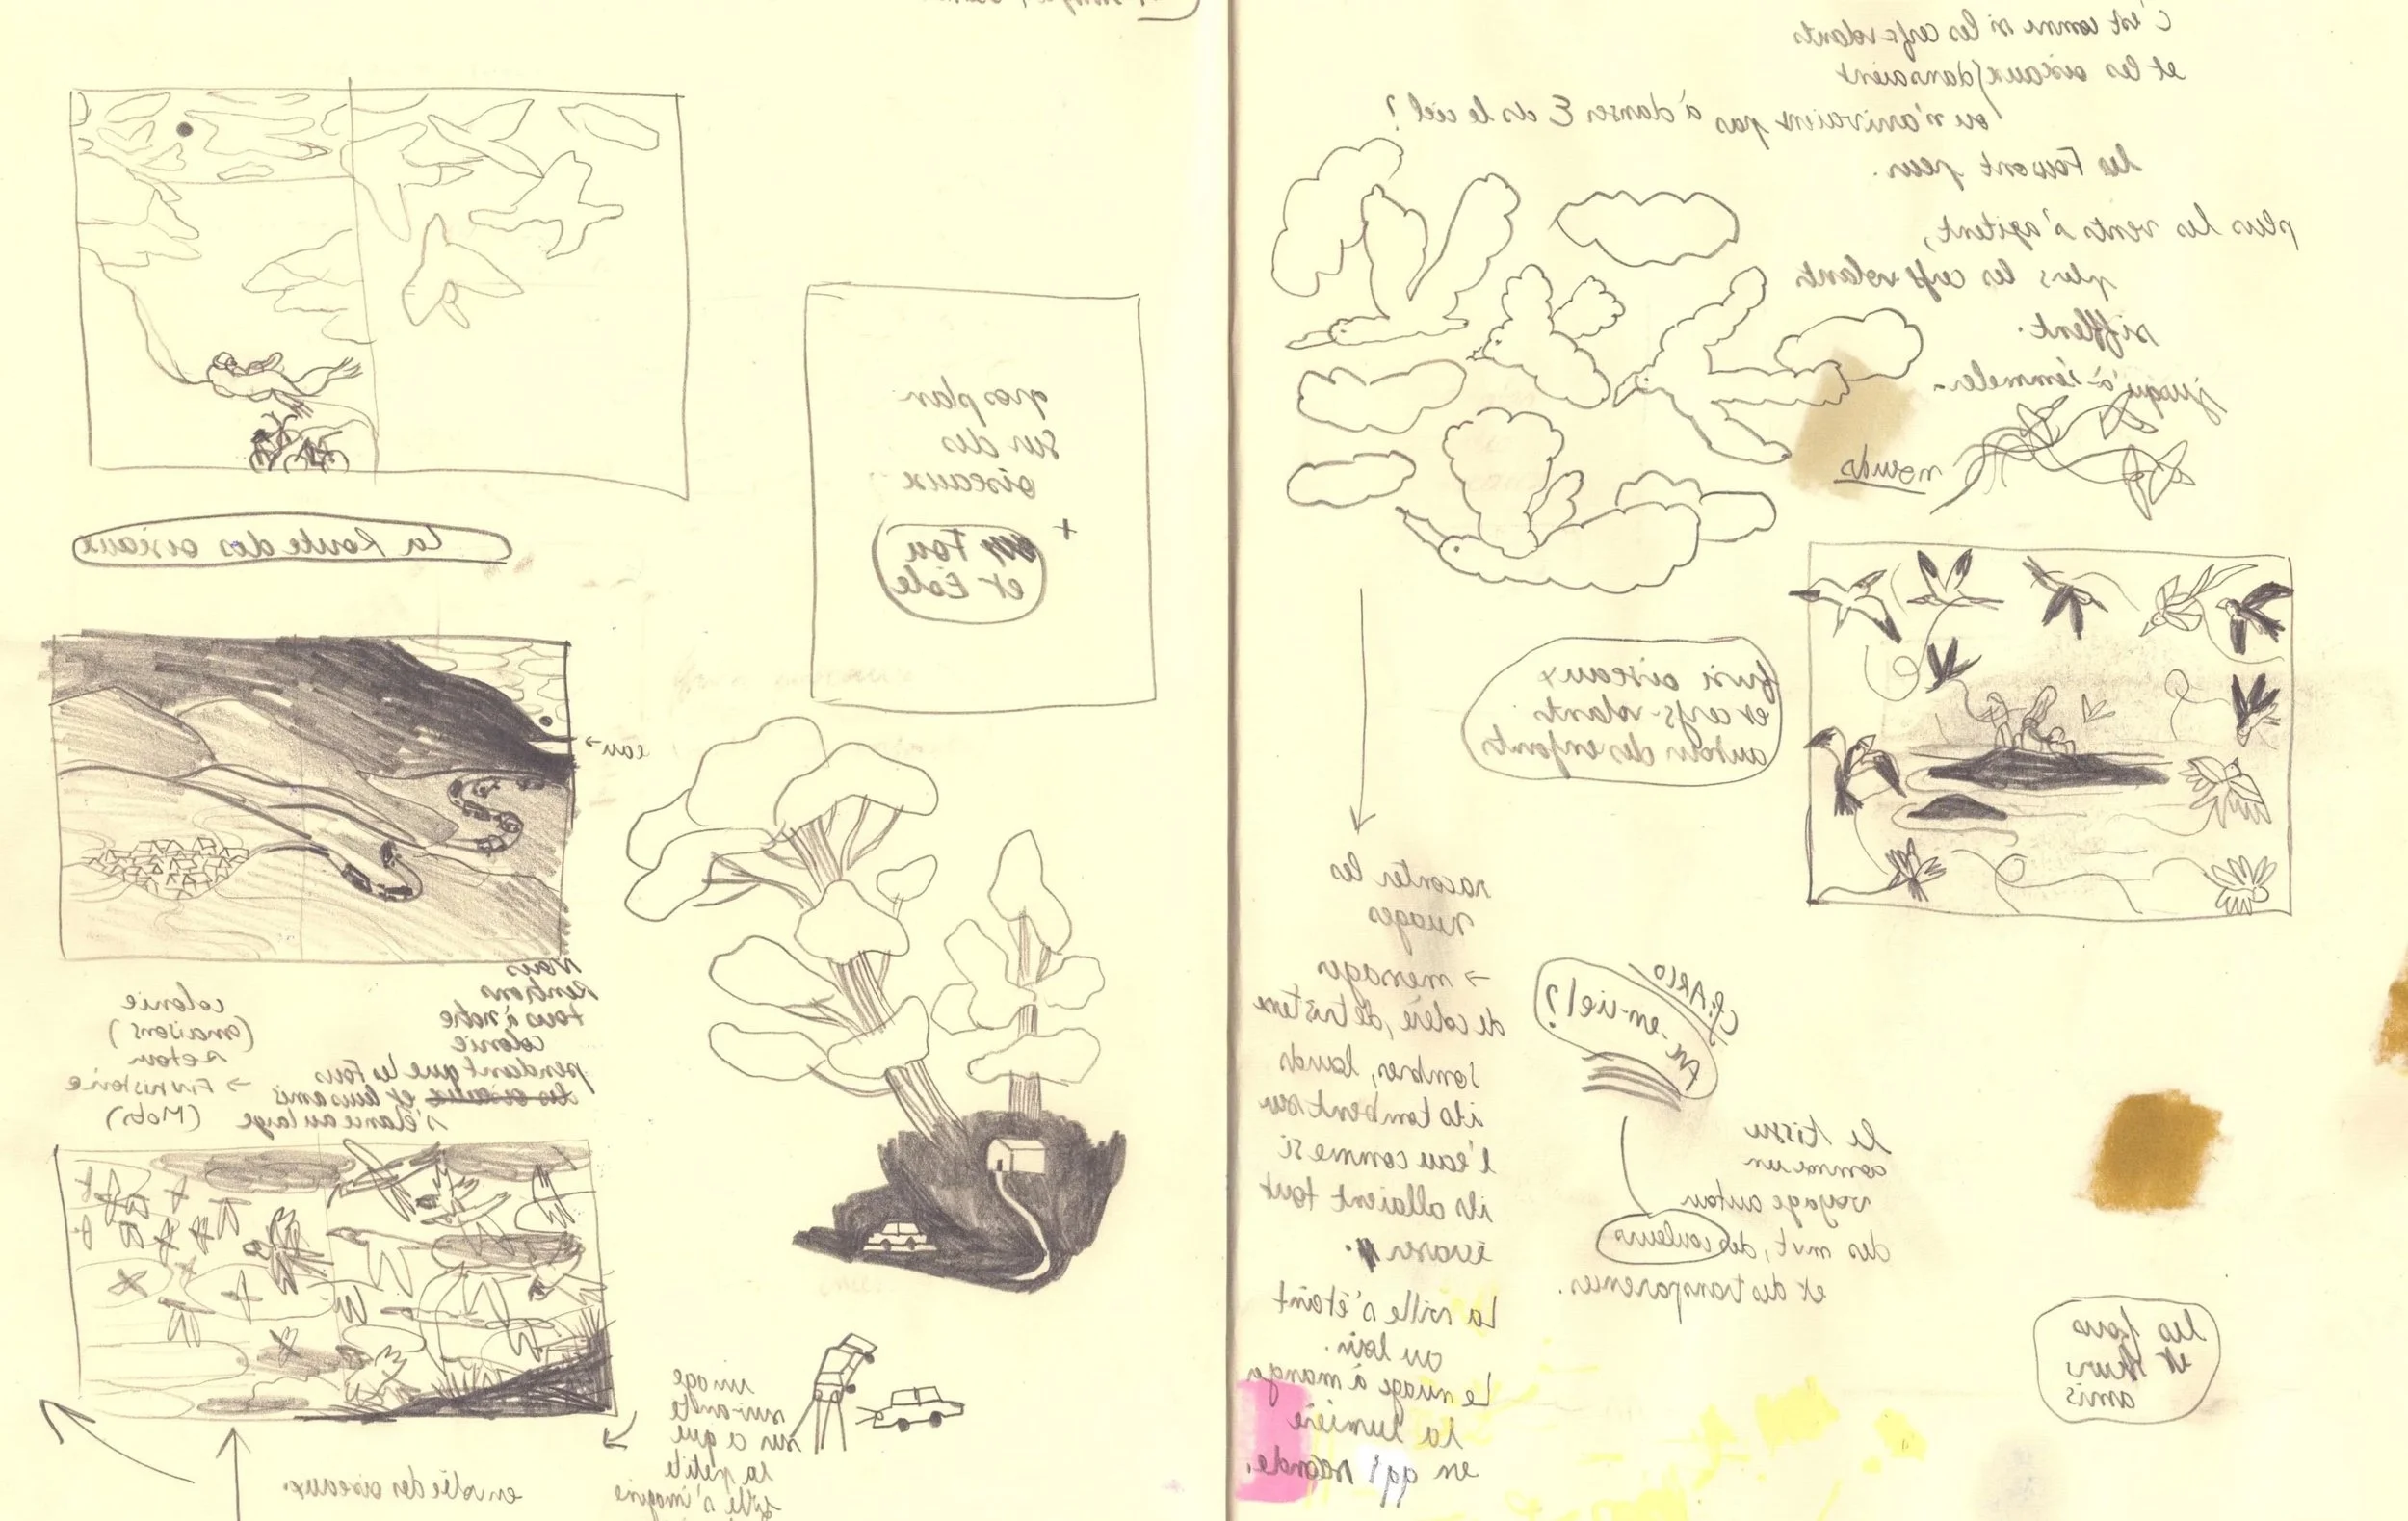 C'est comme si les cerfs-volants
et les oiseaux/dansaient
ou n'arrivaient pas à danser ds le ciel ?
les Fous ont peur.
plus les vents s'agitent,
plus les cerfs volants
sifflent.
jusqu'à s'emmeler.
noeuds
oiseaux
et cerfs-volants
autour des enfants
raconter les
nuages
→ messages
de colère, de tristesse
sombres, lourds
ils tombent sur
l'eau comme si
ils allaient tout
écraser.
La ville s'éteint
au loin.
Le nuage à mangé
la lumière
en qq1 seconde.
Cf: ARCO
Arc-en-ciel ?
le tissu
comme un
voyage autour
des mvt, des couleurs
et des transparences.
les fous
et leurs
amis
gros plan
sur des
oiseaux
+
un Fou
et Eole
La Route des oiseaux
eau →
Nous
rentrons
tous à notre
colonie
pendant que les Fous
les oiseaux et leurs amis
s'élance au large
colonie
(maisons)
retour
(Mots)
image
suivante
sur ce que
la petite
fille s'imagine
envolée des oiseaux.